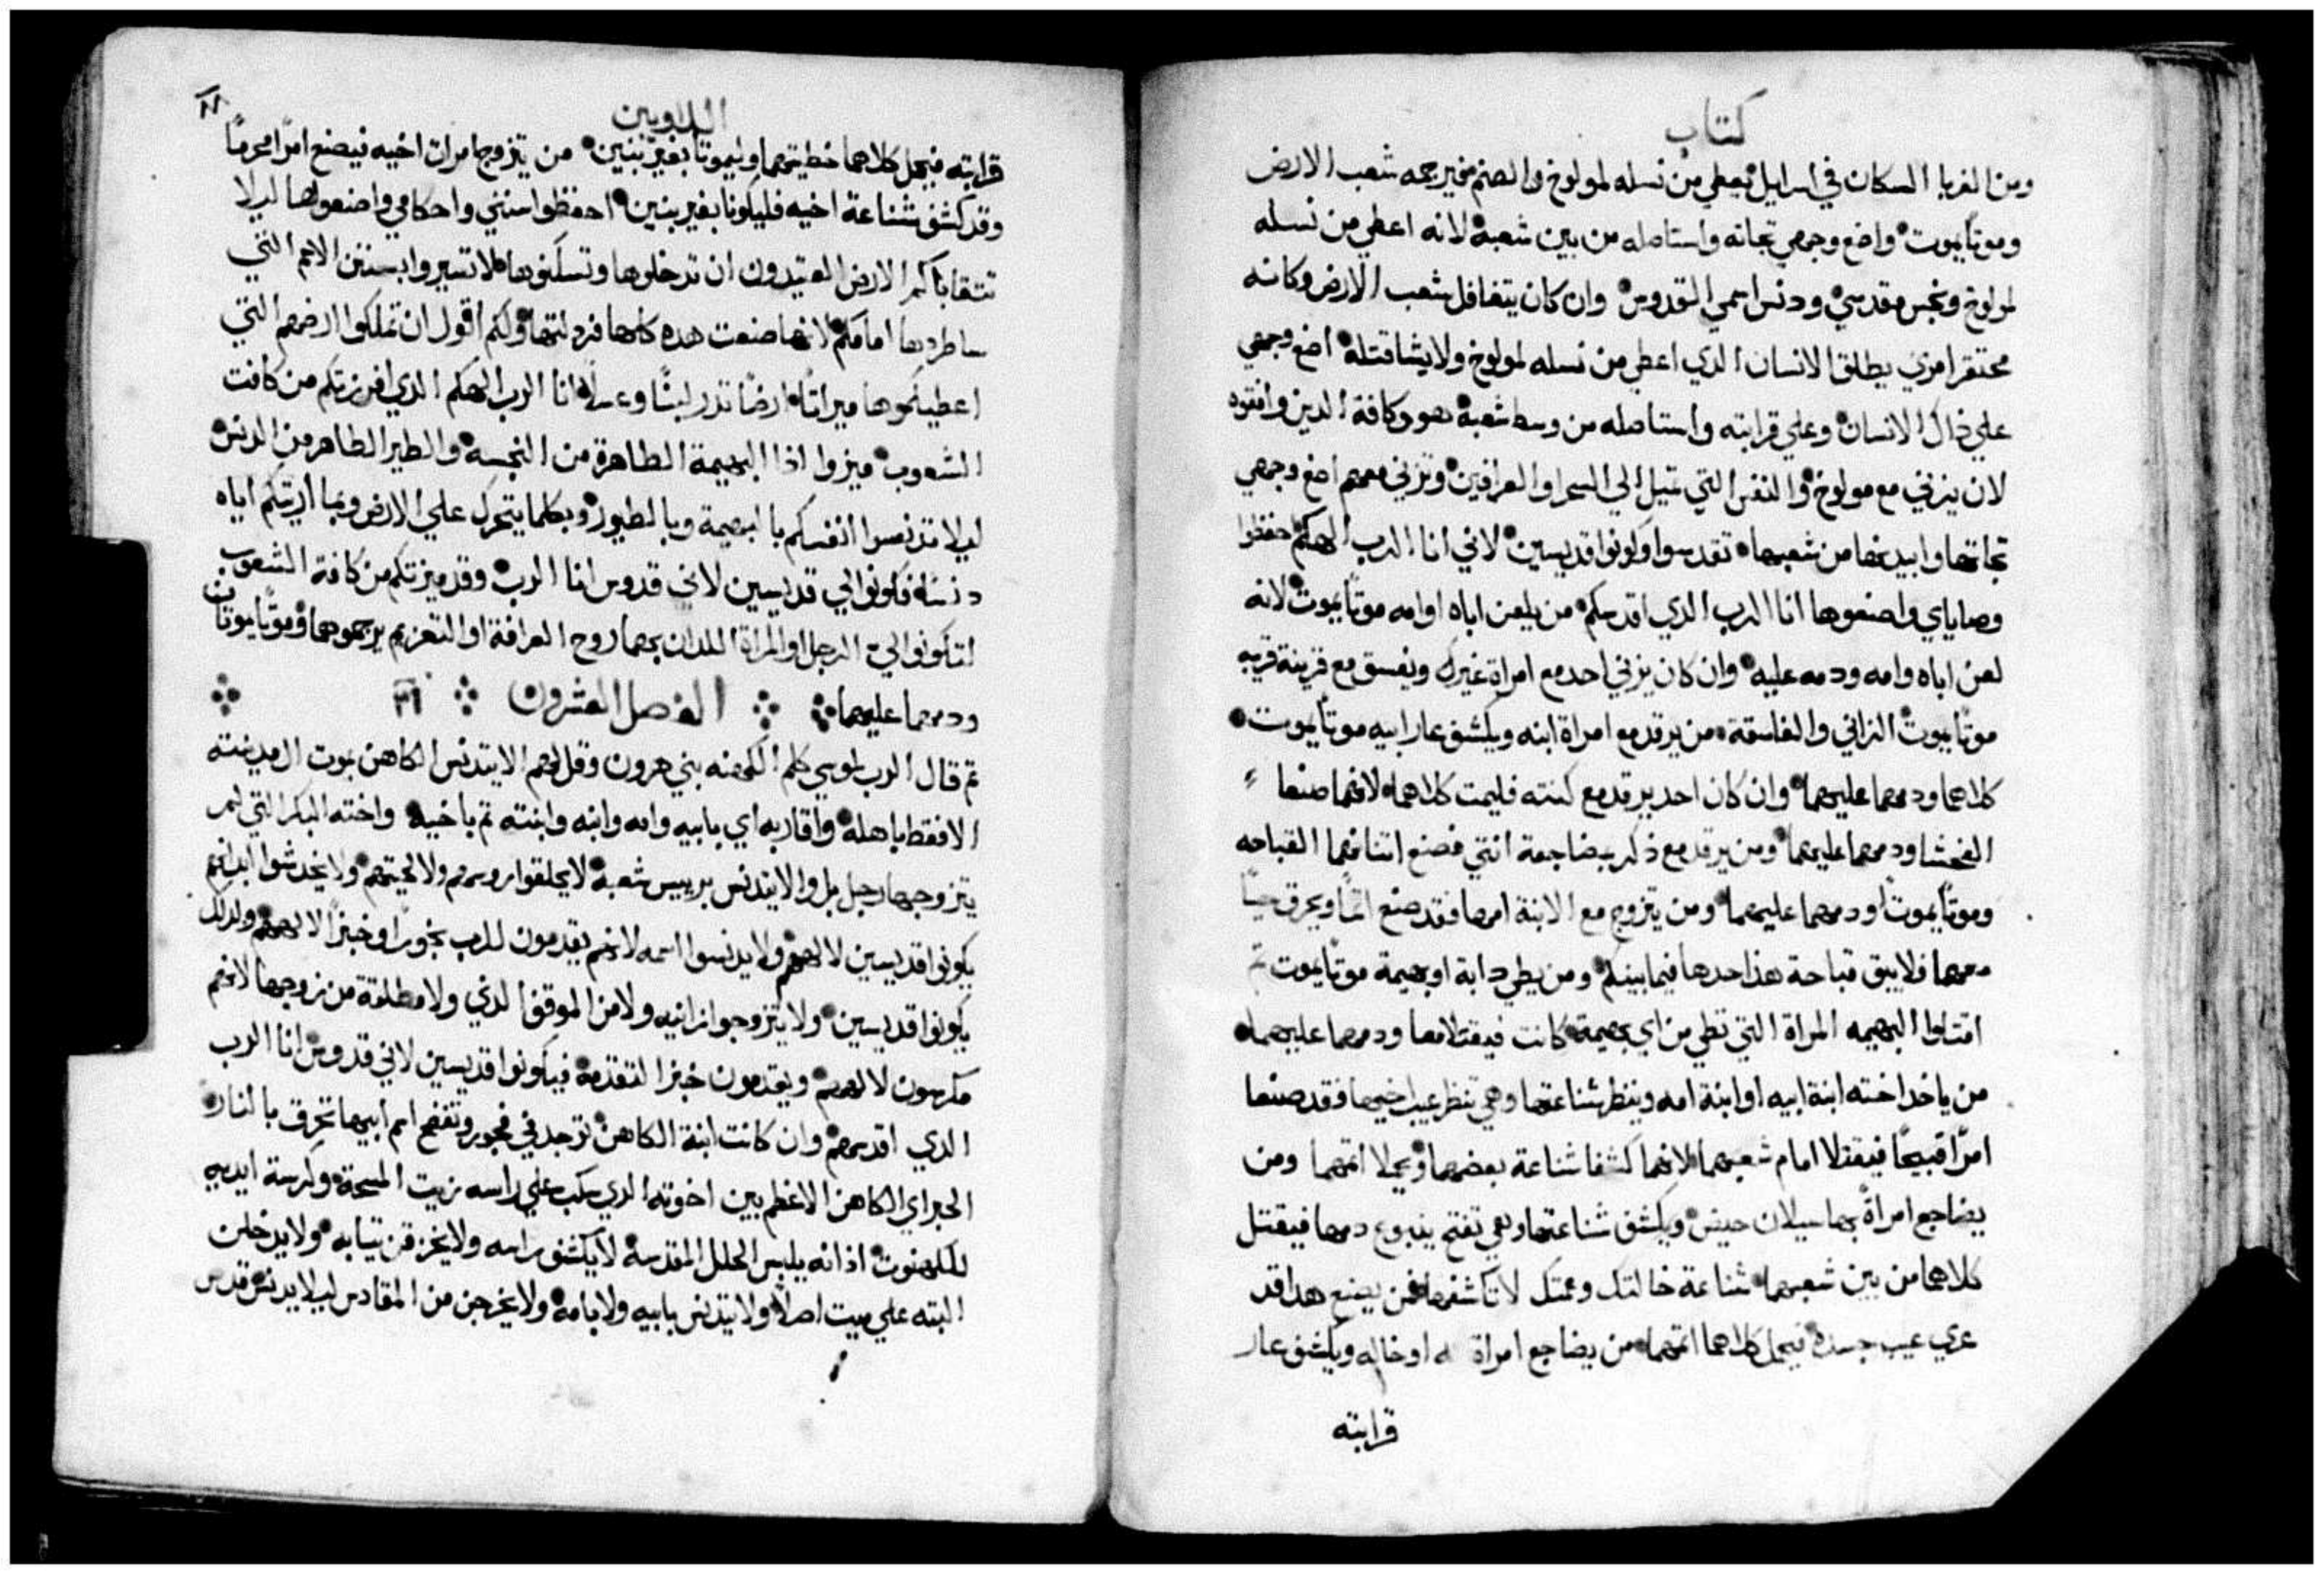 كتاب
ومن الغربا السكان في اسرايل يعطي من نسله لمولوخ والصنم فليرجمه شعب الارض
وموتا يموت واضع وجهي تجاته واستاصله من بين شعبه لانه اعطي من نسله
لمولوخ ونجس مقدسي ودنس اسمي القدوس وان كان يتغافل شعب الارض وكانه
محتقر امري يطلق الانسان الدي اعطي من نسله لمولوخ ولا يشا قتله اضع وجهي
علي ذاك الانسان وعلي قرابته واستاصله من وسط شعبه هو وكافة الدين وافقوه
لان يزني مع مولوخ والنفس التي تميل الي السحرا والعرافين وتزني معهم اضع وجهي
تجاتها وابيدها من شعبها تقدسوا وكونوا قديسين لاني انا الرب الهكم احفظوا
وصاياي واصنعوها انا الرب الدي اقدسكم من يلعن اباه او امه موتًا يموت لانه
لعن اباه وامه ودمه عليه وان كان يزني احد مع امراة غيرك ويفسق مع قرينة قريبه
موتًا يموت الزاني والفاسقة من يرقد مع امراة ابيه ويكشف عار ابيه موتًا يموت
كلاهما ودمهما عليهما وان كان احد يرقد مع كنته فليمت كلاهما لانهما صنعا
الفحشا ودمهما عليهما ومن يرقد مع ذكر بمضاجعة انتي فصنع اتنانهما القباحه
وموتًا يموتا ودمهما عليهما ومن يتزوج مع الابنة امها فقد صنع اتمًا ويحرق حيًا
معهما فلا يبق قباحة هذا حدها فيما بينكم ومن يطي دابة او بهيمة موتًا يموت تم
اقتلوا البهيمه المراة التي تطي من اي بهيمة كانت فيقتلا معا ودمهما عليهما
من ياخد اخته ابنة ابيه او ابنة امه وينظر شناعتها وهي تنظر عيب اخيها فقد صنعا
امرًا قبيحًا فيقتلا امام شعبهما لانهما كشفا شناعة بعضهما ويحملا اتمهما ومن
يضاجع امراةً بها سيلان حيض ويكشف شناعتها وهي تفتح ينبوع دمها فيقتل
كلاهما من بين شعبهما شناعة خالتك وعمتك لا تكشفها فمن يصنع هدا قد
عري عيب جسده فيحمل كلاهما اتمهما من يضاجع امراة او خاله ويكشف عار
قرابته
اللاويين
قرابته فيحمل كلاهما خطيتهما وليموتا بغير بنين من يتزوج امرات اخيه فيصنع امرًا محرمًا
وقد كشف شناعة اخيه فليكونا بغير بنين احفظوا سنني واحكامي واصنعوها ليلا
تتقاياكم الارض العتيدون ان تدخلوها وتسكنوها لا تسيروا بسنن الامم التي
ساطردها امامكم لانها صنعت هده كلها فزدلتها ولكم اقول ان تملكوا ارضهم التي
اعطيكموها ميراتًا ارضًا تدر لبنًا وعسلًا انا الرب الهكم الدي افرزتكم من كافت
الشعوب ميزوا اذا البهيمة الطاهرة من النجسه والطير الطاهر من الدنس
ليلا تدنسوا انفسكم بالبهيمة وبالطيور وبكلما يتحرك علي الارض وبما اريتكم اياه
دنسًا فكونوا لي قديسين لاني قدوس انا الرب وقد ميزتكم من كافة الشعوب
لتكونوا لي الرجل او المراة اللدان بهما روح العرافة او التعزيم يرجموهما وموتًا يموتان
ودمهما عليهما الفصل العشرون ٢١
تم قال الرب لموسي كلم الكهنه بني هرون وقل لهم الا يتدنس الكاهن بموت ال مدينته
الا فقط باهله واقاربه اي بابيه وامه وابنه وابنته تم باخيه واخته البكر التي لم
يتزوجها رجل بل والا يتدنس برييس شعبه لا يحلقوا روسهم ولا لحيتهم ولا يخدشوا ابدانهم
يكونوا قديسين لالههم ولا يدنسوا اسمه لانهم يقدمون للرب بخورًا وخبزًا لالههم ولدلك
يكونوا قديسين ولا يتزوجوا زانيه ولا من الموقف الدني ولا مطلقة من زوجها لانهم
مكرسون لالههم ويقدمون خبز التقدمة فيكونوا قديسين لاني قدوس انا الرب
الدي اقدسهم وان كانت ابنة الكاهن توجد في فجور وتفضح اسم ابيها تحرق بالنار
الحبر اي الكاهن الاعظم بين اخوته الدي سكب علي راسه زيت المسحة وكرسة ايديه
للكهنوت اذ انه يلبس الحلل المقدسة لا يكشف راسه ولا يخرقن تيابه ولا يدخلن
البته علي ميت اصلًا ولا يتدنس بابيه ولا بامه ولا يخرجن من المقادس ليلا يدنس قدس